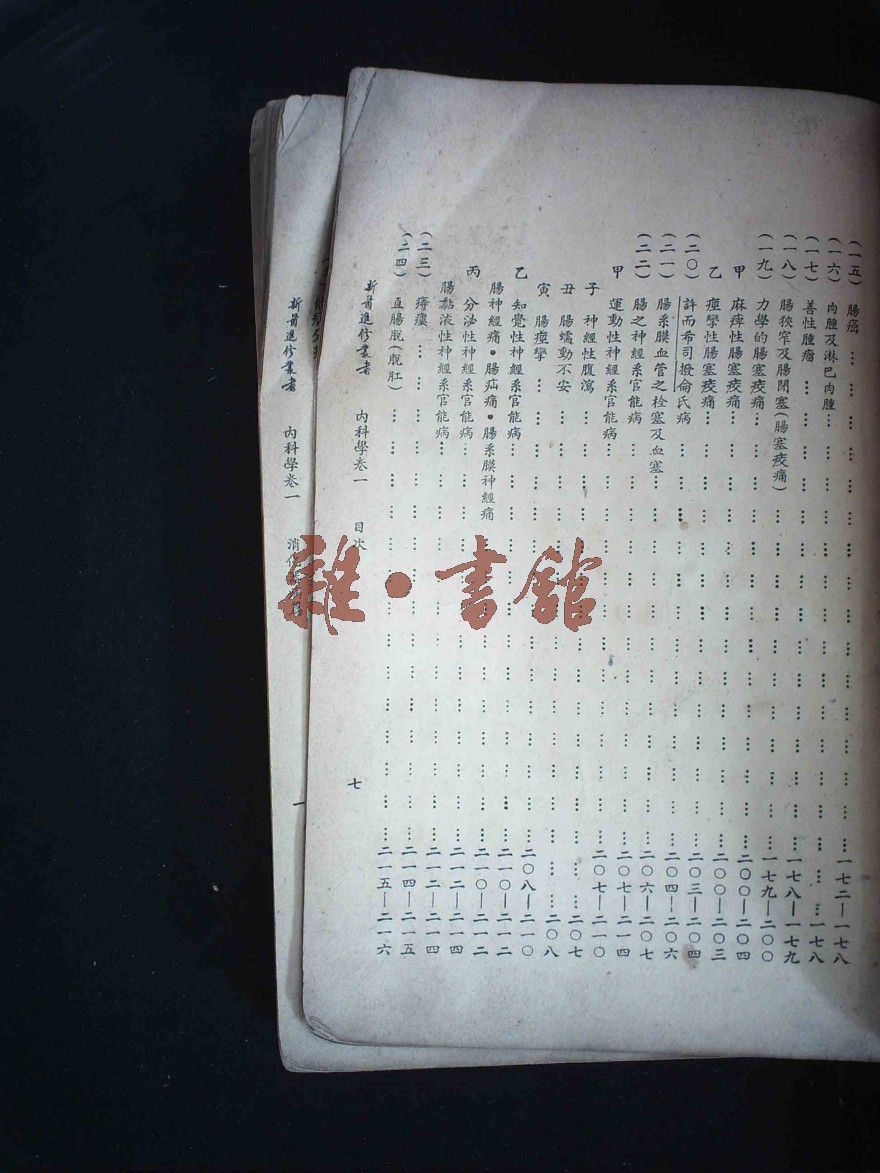 (一五) 腸癌 … 一七二—一七八
(一六) 肉腫及淋巴肉腫 … 一七八
(一七) 善性腫瘤 … 一七八—一七九
(一八) 腸狹窄及腸閉塞(腸塞疫痛) … 一七九—二〇〇
(一九) 力學的腸塞疫痛 … 二〇〇—二〇四
甲 麻痺性腸塞疫痛 … 二〇〇—二〇三
乙 痙攣性腸塞疫痛 … 二〇三—二〇四
(二〇) 許而希司撥倫氏病 … 二〇四—二〇六
(二一) 腸系膜血管之栓塞及血塞 … 二〇六—二〇七
(二二) 腸之神經系官能病 … 二〇七—二一四
甲 運動性神經系官能病 … 二〇七—二一〇
子 神經性腹瀉 … 二〇七
丑 腸蠕動不安 … 二〇八
寅 腸痙攣 … 二〇八—二一〇
乙 知覺性神經系官能病 … 二一〇—二一二
腸神經痛•腸疝痛•腸系膜神經痛 … 二一〇—二一二
丙 分泌性神經系官能病 … 二一二—二一四
腸黏液性神經系官能病 … 二一二—二一四
(二三) 痔瘻 … 二一四—二一五
(二四) 直腸脫(脫肛) … 二一五—二一六
新醫進修叢書 內科學卷一 目次 七
新醫進修叢書 內科學卷一 消化 一
雜•書館